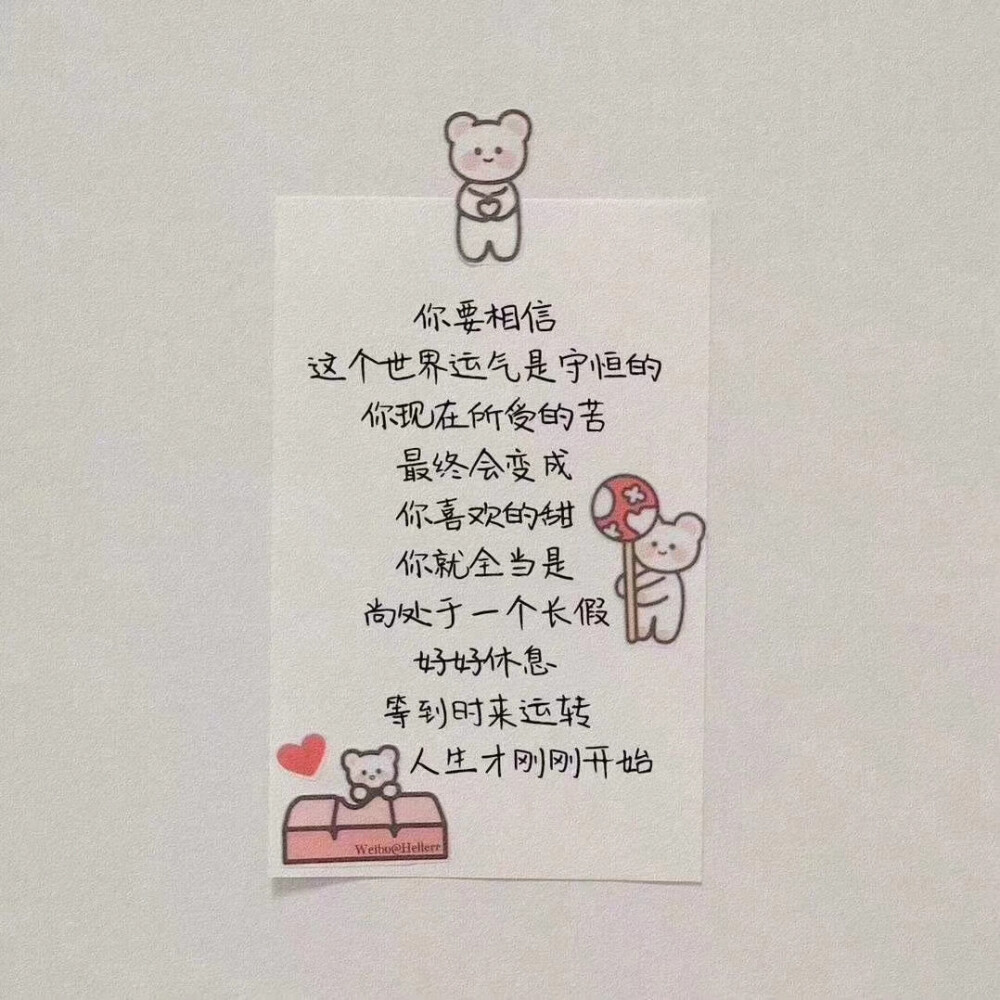 你要相信
这个世界运气是守恒的
你现在所受的苦
最终会变成
你喜欢的甜
你就全当是
尚处于一个长假
好好休息
等到时来运转
人生才刚刚开始
Weibo@Hellerr